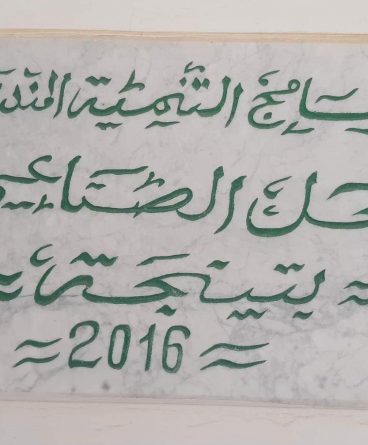 ـرامج التنمية المند
ـحل الصناعيـ
≈ بتينجة ≈
≈ 2016 ≈